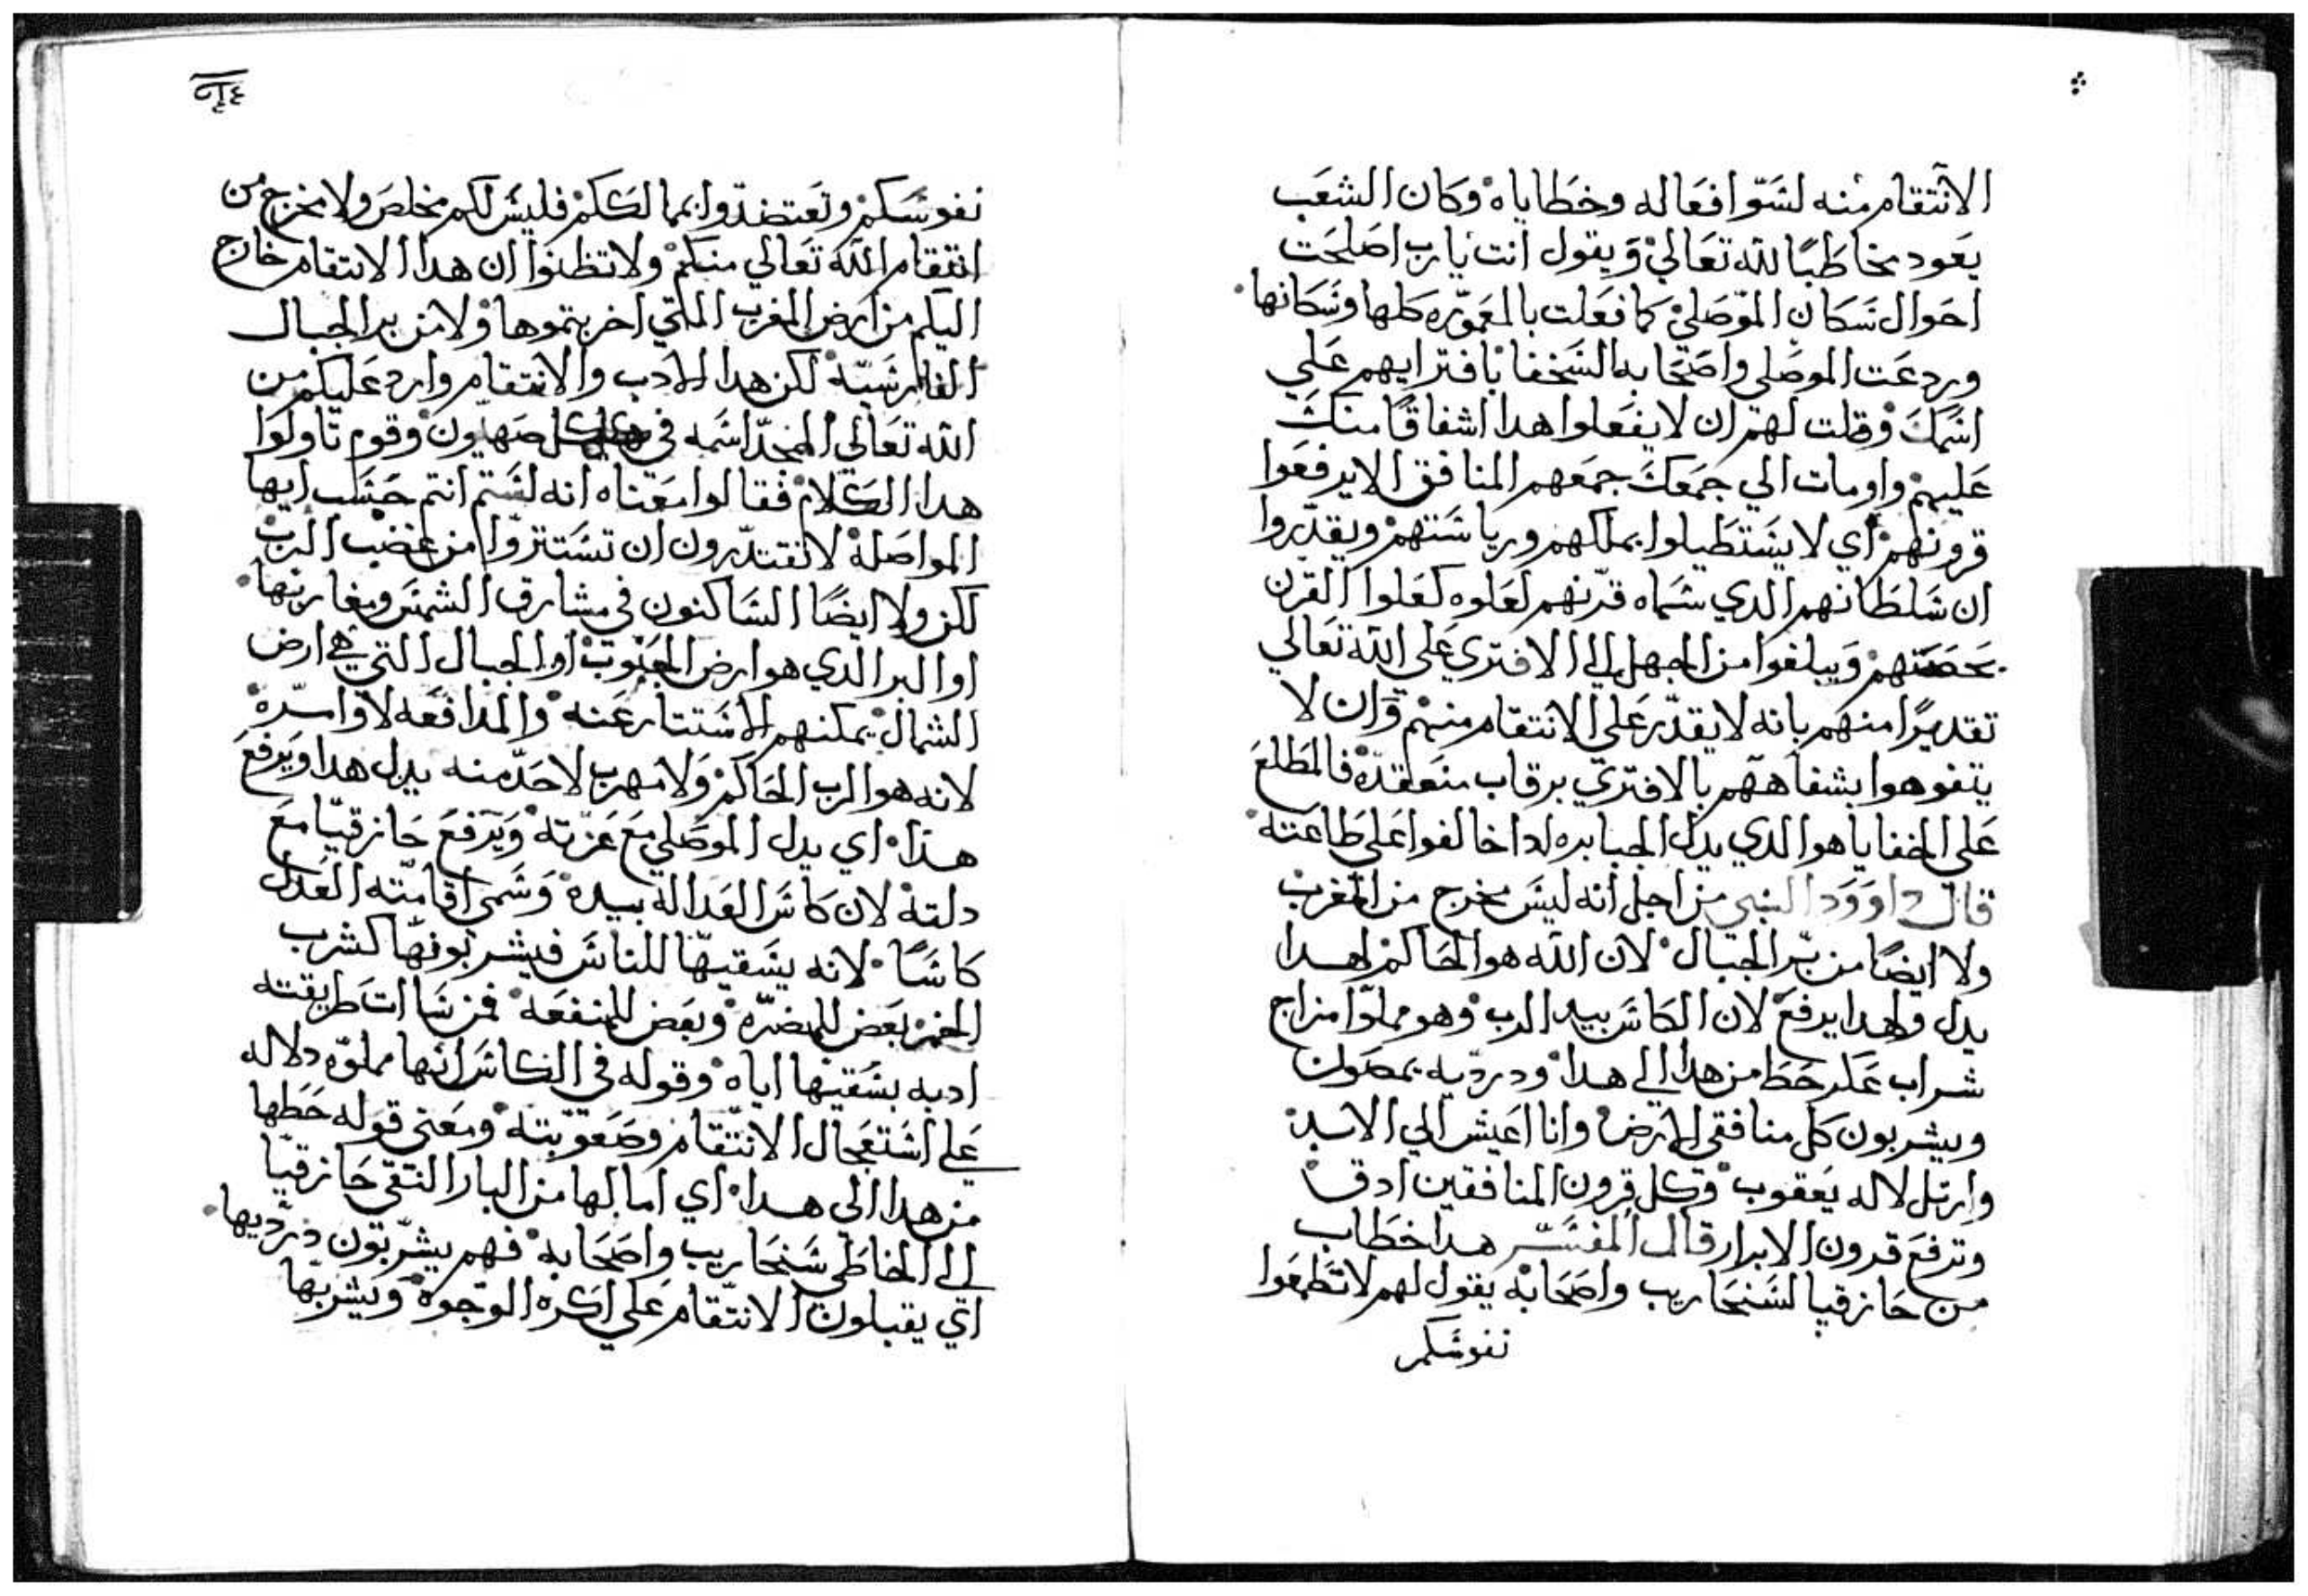 الانتقام منه لسوا فعاله وخطاياه وكان الشعب
يعود مخاطبًا لله تعالي ويقول انت يارب اصلحت
احوال سكان الموصلي كما فعلت بالمعموره كلها وسكانها
وردعت الموصلي واصحابه السخفا بافترايهم علي
اسمك وقلت لهم ان لا يفعلوا هدا اشفاقًا منك
عليهم واومات الي جمعك جمعهم المنافق الا يرفعوا
قرونهم اي لا يستطيلوا بملكهم ورياستهم ويقدروا
ان سلطانهم الدي سماه قرنهم لعلوه كعلوا القرن
يحصنهم ويبلغوا من الجهل الي الافتري علي الله تعالي
تقديرًا منهم بانه لا يقدر علي الانتقام منهم وان لا
يتفوهوا بشفاههم بالافتري برقاب منعقده فالمطلع
علي الخفايا هو الدي يدل الجبابره ادا خالفوا علي طاعته
قال داوود النبي من اجل انه ليس مخرج من المغرب
ولا ايضًا من بر الجبال لان الله هو الحاكم لهدا
يدل ولهدا يرفع لان الكاس بيد الرب وهو مملوا مزاج
شراب عكر حط من هدا الي هدا ودرديه يمصون
ويشربون كل منافقي الارض وانا اعيش الي الابد
وارتل لاله يعقوب وكل قرون المنافقين ادق
وترفع قرون الابرار قال المفسر هدا خطاب
من حازقيا لسنحاريب واصحابه يقول لهم لا تطمعوا
نفوسكم
نفوسكم وتعتضدوا بمالكم فليس لكم مخلص ولا مخرج من
انتقام الله تعالي منكم ولا تظنوا ان هدا الانتقام خارج
اليكم من ارض المغرب اللتي اخربتموها ولا من بر الجبال
الفارسيه لكن هدا الادب والانتقام وارد عليكم من
الله تعالي الممجد اسمه في صهيون وقوم تاولوا
هدا الكلام فقالوا معناه انه لستم انتم حسب ايها
المواصله لا تقتدرون ان تستتروا من غضب الرب
لكن ولا ايضًا الساكنون في مشارق الشمس ومغاربها
او البر الدي هو ارض الجنوب او الجبال التي هي ارض
الشمال يمكنهم الاستتار عنه والمدافعه لاوامره
لانه هو الرب الحاكم ولا مهرب لاحد منه يدل هدا ويرفع
هذا اي يدل الموصلي مع عزته ويرفع حازقيا مع
دلته لان كاس العداله بيده وسمي اقامته العدل
كاسًا لانه يسقيها للناس فيشربونها كشرب
الخمر بعض للمضره وبعض للمنفعه فمن ساات طريقته
ادبه بسقيها اياه وقوله في الكاس انها مملوه دلاله
علي استعجال الانتقام وصعوبته ومعني قوله حطها
من هدا الي هدا اي امالها من البار التقي حازقيا
الي الخاطي سنحاريب واصحابه فهم يشربون درديها
اي يقبلون الانتقام علي اكره الوجوه ويشربها